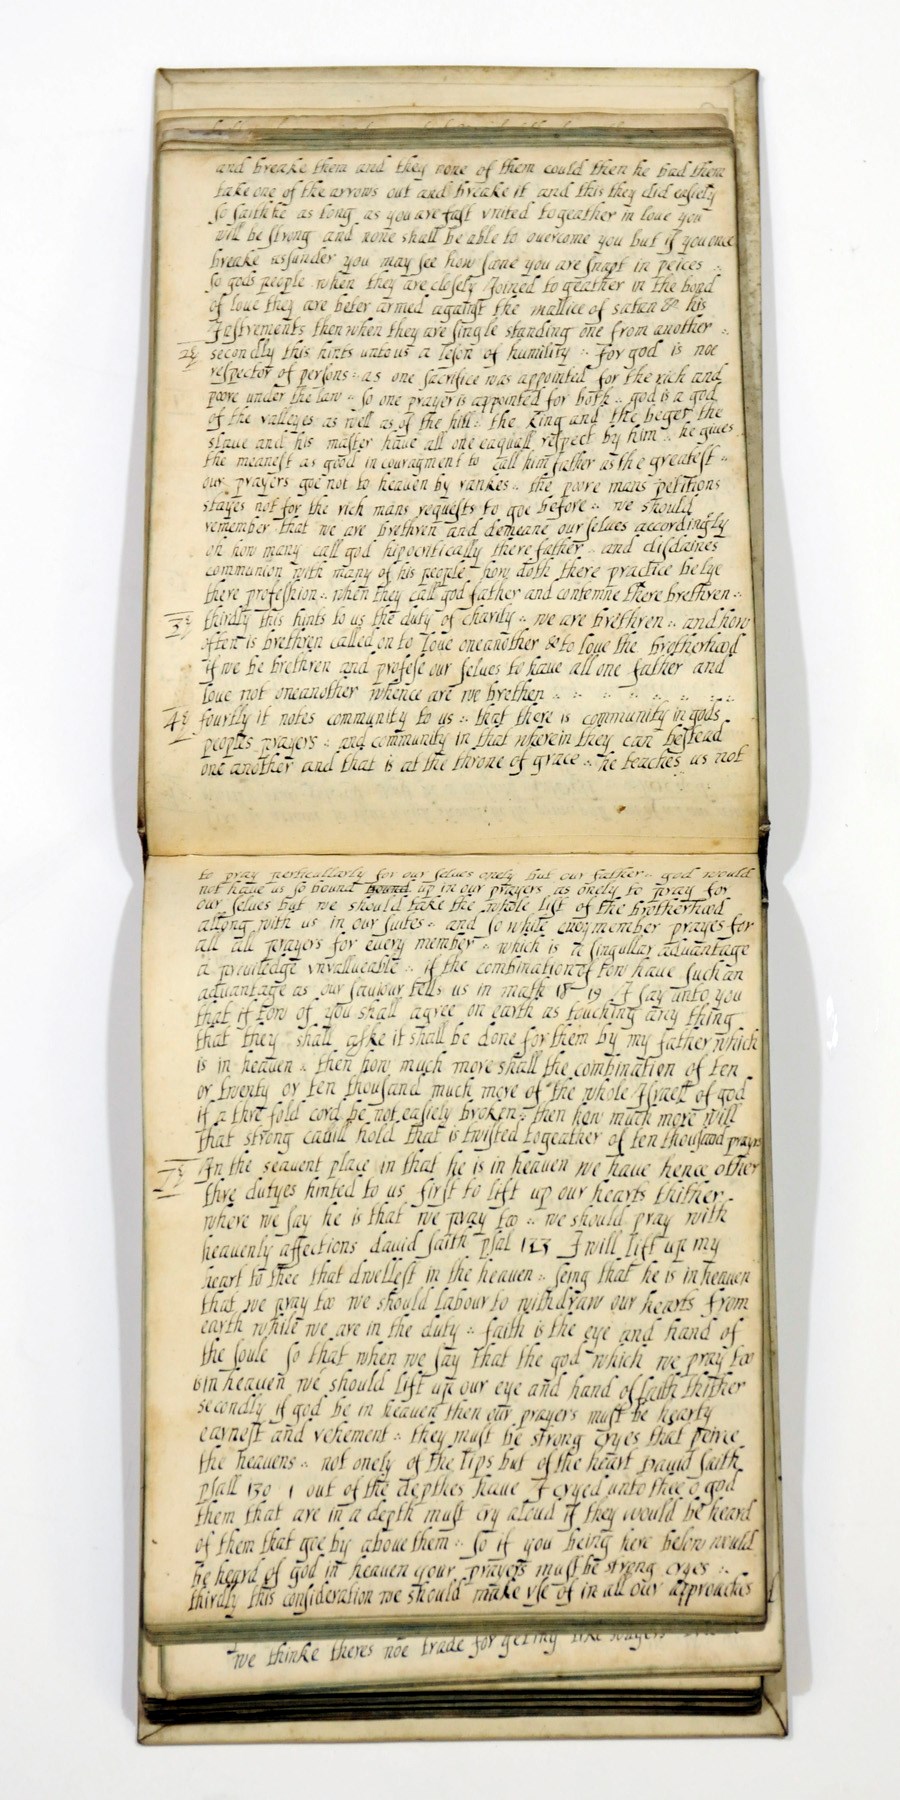 and breake them and they none of them could then he bad them
take one of the arrows out and breake it and this they did easiely
so saith he as long as you are fast vnited togeather in loue you
will be strong and none shall be able to ouercome you but if you once
breake assunder you may see how soone you are snapt in peices :.
so gods people when they are closely Joined to geather in the bond
of loue they are beter armed against the mallice of satan & his
Instrements then when they are single standing one from another :.
2ly secondly this hints unto us a leson of humility :. for god is noe
respector of persons :. as one sacrifice was appointed for the rich and
poore under the law :. so one prayer is appointed for both :. god is a god
of the valleyes as well as of the hill :. the King and the beger the
slaue and his master haue all one eaquall respect by him :. he giues
the meanest as good incouragment to call him father as the greatest :.
our prayers goe not to heauen by rankes :. the poore mans petitions
stayes not for the rich mans requests to goe before :. we should
remember that we are brethren and demeane our selues accordingly
oh how many call god hipocritically there father :. and disdaines
communion with many of his people how doth there practice belye
there profession :. when they call god father and contemne there brethren :.
3ly thirdly this hints to us the duty of charity :. we are brethren :. and how
often is brethren called on to loue oneanother & to loue the brotherhood
if we be brethren and profese our selues to haue all one father and
loue not oneanother whence are we brethen :. :. :. :. :. :.
4ly fourtly it notes community to us :. that there is community in gods
peoples prayers :. and community in that wherein they can bestead
one another and that is at the throne of grace :. he teaches us not
to pray perticullarly for our selues onely but our father :. god would
not haue us so bound bound up in our prayers as onely to pray for
our selues but we should take the whole list of the brotherhood
along with us in our suites :. and so while euery member prayes for
all all prayers for euery member :. which is a singullar aduantage
a priuiledge vnvallueable :. if the combination of tow haue such an
aduantage as our sauiour tells us in math 18 19 I say unto you
that if tow of you shall agree on earth as touching any thing
that they shall aske it shall be done for them by my father which
is in heauen :. then how much more shall the combination of ten
or twenty or ten thousand much more of the whole Israell of god
if a thre fold cord be not easiely broken :. then how much more will
that strong cabill hold that is twisted togeather of ten thousand prayrs
7ly In the seauent place in that he is in heauen we haue hence other
thre dutyes hinted to us first to lift up our hearts thither
where we say he is that we pray too :. we should pray with
heauenly affections dauid saith psal 123 I will lift up my
heart to thee that dwellest in the heauen :. seing that he is in heauen
that we pray too we should labour to withdraw our hearts from
earth while we are in the duty :. faith is the eye and hand of
the soule so that when we say that the god which we pray too
is in heauen we should lift up our eye and hand of faith thither
secondly if god be in heauen then our prayers must be hearty
earnest and vehement :. they must be strong cryes that peirce
the heauens :. not onely of the lips but of the heart Dauid saith
psall 130 1 out of the depthes haue I cryed unto thee o god
them that are in a depth must cry aloud if they would be heard
of them that goe by aboue them :. so if you being here below would
be heard of god in heauen your prayers must be strong cryes :.
thirdly this consideration we should make vse of in all our approaches
we thinke theres noe trade for geting like